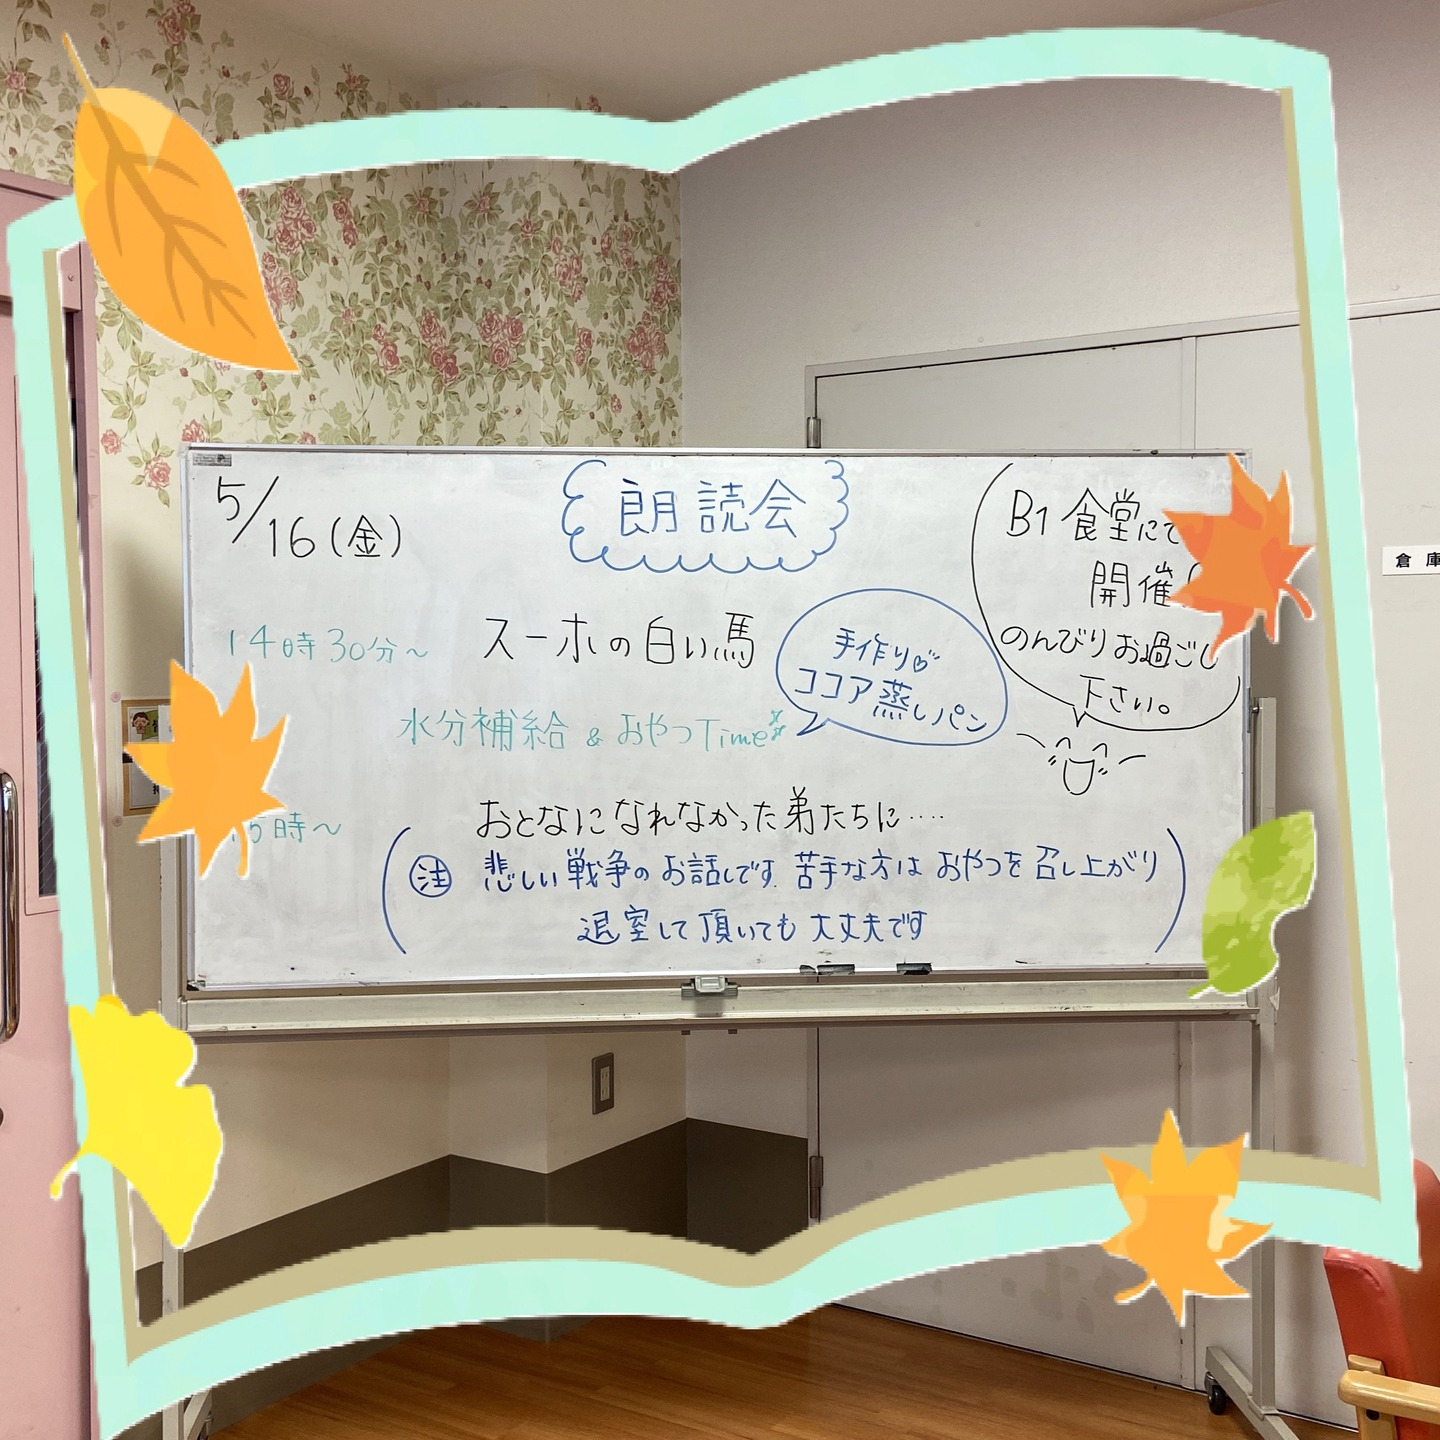 5/16(金)
朗読会
B1 食堂にて
開催
のんびりお過ごし
下さい。
14時30分~
スーホの白い馬
手作り
ココア蒸しパン
水分補給 & おやつTime
15時~
おとなになれなかった弟たちに‥‥
注 悲しい戦争のお話しです. 苦手な方は おやつを召し上がり
退室して頂いても 大丈夫です
倉庫